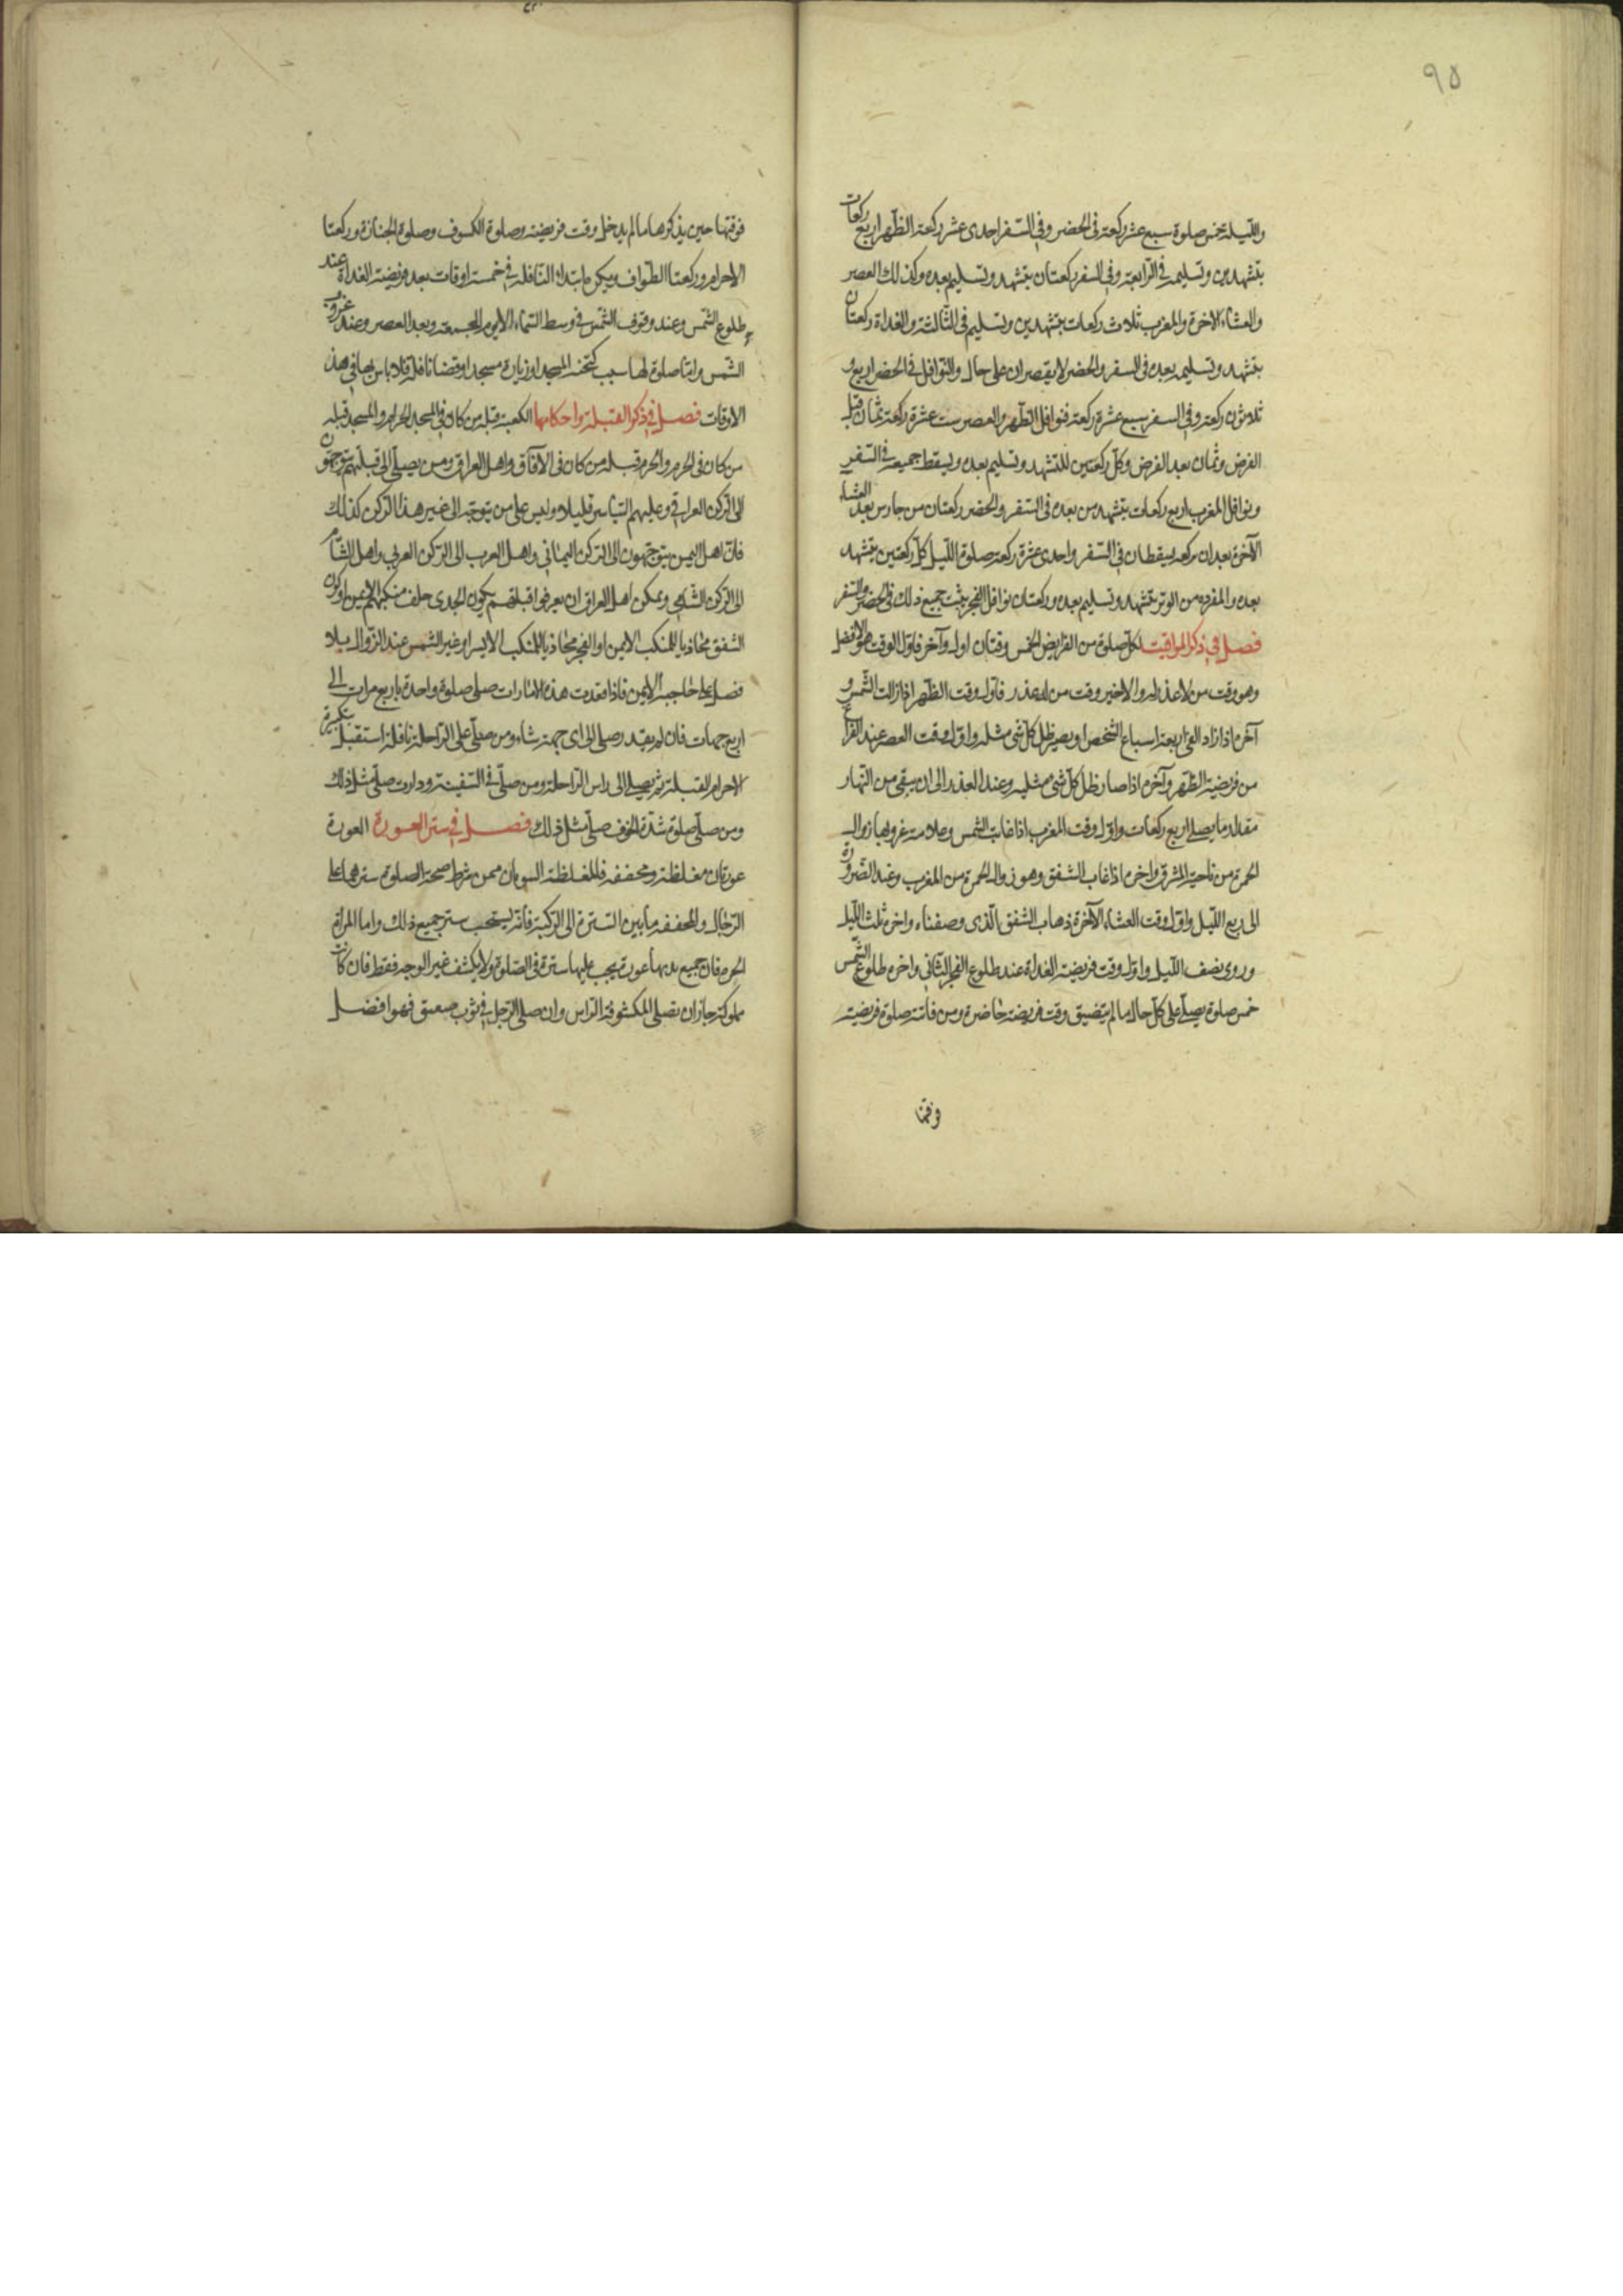 ٩٥
والليلة خمس صلوة سبع عشر ركعة فى الحضر وفى السفر احدى عشر ركعة الظهر اربع ركعات
بتشهدين وتسليمه فى الرابعة وفى السفر ركعتان بتشهد وتسليم بعده وكذلك العصر
والعشاء الاخرة والمغرب ثلاث ركعات بتشهدين وتسليم فى الثالثة والغداة ركعتان
بتشهد وتسليمه بعده فى السفر والحضر لا يقصران على حال والنوافل فى الحضر اربع و
ثلاثون ركعة وفى السفر سبع عشرة ركعة فنوافل الظهر والعصر ست عشرة ركعة ثمان قبل
الفرض وثمان بعد الفرض وكل ركعتين للتشهد وتسليم بعده ويسقط جميعه فى السفر
ونوافل المغرب اربع ركعات بتشهدين بعده فى السفر والحضر ركعتان من جلوس بعد العشاء
الآخرة بعدان بركعة يسقطان فى السفر واحدى عشرة ركعة صلوة الليل كل ركعتين بتشهد
بعده والمفرده من الوتر بتشهد وتسليم بعده وركعتان نوافل الفجر يثبت جميع ذلك فى الحضر والسفر
فصل فى ذكر المواقيت لكل صلوة من الفرايض الخمس وقتان اول وآخر فاول الوقت هو الافضل
وهو وقت من لا عذر له والاخير وقت من له عذر فاول وقت الظهر اذا زالت الشمس و
آخره اذا زاد الفئ اربعة اسباع الشخص او يصير ظل كل شئ مثله واول وقت العصر عند الفراغ
من فريضة الظهر وآخره اذا صار ظل كل شئ مثليه وعند العذر الى ان يبقى من النهار
مقدار ما يصلى اربع ركعات واول وقت المغرب اذا غابت الشمس وعلامة غروبها زوال
الحمرة من ناحية المشرق واخره اذا غاب الشفق وهو زوال الحمرة من المغرب وعند الضرورة
الى ربع الليل واول وقت العشاء الآخرة ذهاب الشفق الذى وصفناه واخره ثلث الليل
وروى نصف الليل واول وقت فريضة الغداة عند طلوع الفجر الثانى واخره طلوع الشمس
خمس صلوة يصلى على كل حال ما لم يتضيق وقت فريضة حاضرة ومن فاتته صلوة فريضة
فوقتها
فوقتها حين يذكرها ما لم يدخل وقت فريضة وصلوة الكسوف وصلوة الجنازة وركعتا
الاحرام وركعتا الطواف ويكره ابتداء النافلة فى خمسة اوقات بعد فريضة الغداة عند
طلوع الشمس وعند وقوف الشمس فى وسط السماء الا يوم الجمعة وبعد العصر وعند غروب
الشمس واما صلوة لها سبب كتحية المسجد او زيارة مسجد او قضا نافلة فلا باس بها فى هذه
الاوقات فصل فى ذكر القبلة واحكامها الكعبة قبلة من كان فى المسجد الحرام والمسجد قبلة
من كان فى الحرم والحرم قبلة من كان فى الآفاق واهل العراق ومن يصلى الى قبلتهم يتوجهون
الى الركن العراقى وعليهم التياسر قليلا وليس على من يتوجه الى غير هذا الركن كذلك
فان اهل اليمن يتوجهون الى الركن اليمانى واهل الغرب الى الركن الغربى واهل الشام
الى الركن الشامى ويمكن اهل العراق ان يعرفوا قبلتهم بكون الجدى خلف منكبهم الايمن او كون
الشفق محاذيا للمنكب الايمن او الفجر محاذيا للمنكب الايسر او عين الشمس عند الزوال بلا
فصل على حاجبه الايمن فاذا فقدت هذه الامارات صلى صلوة واحدة باربع مرات الى
اربع جهات فان لم يقدر صلى الى اى جهة شاء ومن صلى على الراحلة نافلة استقبل بتكبيرة
الاحرام القبلة ثم يصلى الى راس الراحلة ومن صلى فى السفينة ودارت صلى مثل ذلك
ومن صلى صلوة شدة الخوف صلى مثل ذلك فصل فى ستر العورة العورة
عورتان مغلظة ومخففة فالمغلظة السوءتان فمن شرط صحة الصلوة سترهما على
الرجال والمخففة ما بين السترة الى الركبة فانه يستحب ستر جميع ذلك واما المراة
الحرة فان جميع بدنها عورة يجب عليها سترة فى الصلوة ولا يكشف غير الوجه فقط فان كانت
مملوكة جاز ان تصلى المكشوفة الراس وان صلى الرجل فى ثوب صفيق فهو افضل